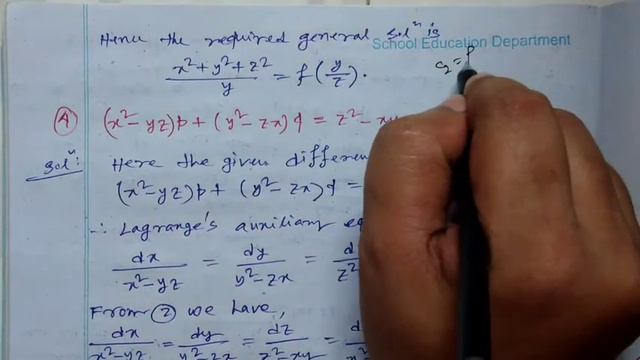 Hence the required general solⁿ is
School Education Department
(x²+y²+z²)/y = f(y/z).
c₂ =
④ (x²-yz)p + (y²-zx)q = z²-xy
Solⁿ: Here the given differen
(x²-yz)p + (y²-zx)q =
∴ Lagrange's auxiliary eq
dx/(x²-yz) = dy/(y²-zx) = d /z²
From ② we have,
dx/(x²-yz) = dy/(y²-zx) = dz/(z²-xy) = d